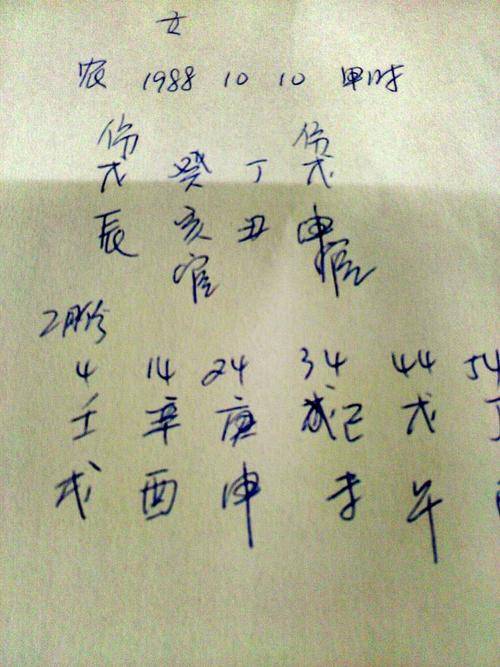 女
农 1988 10 10 申时
伤 伤
戊 癸 丁 戊
辰 亥 丑 申
官 官
4 14 24 34 44 54
壬 辛 庚 己 戊 丁
戌 酉 申 未 午